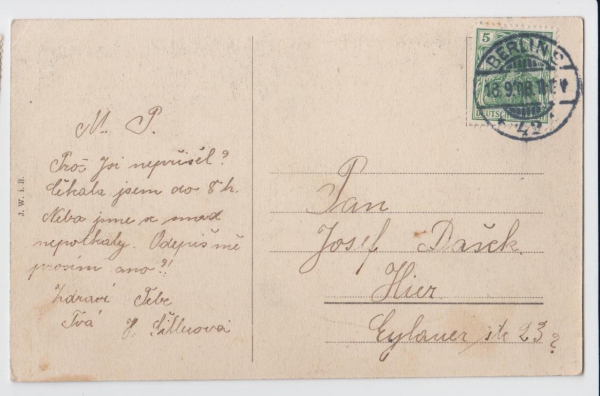 5
BERLIN S.
18.9.08.
* 42 *
DEUTSCHES
J. W. i. B.
M. P.
Proš Jsi nepřišel?
Čekala jsem do 8 h.
Neba jsme se
nepotkaly. Odepiš mě
prosím ano?!
Zdraví Tebe
Tvá
Pan
Josef Dašek
Hier
Eylauer str 23?